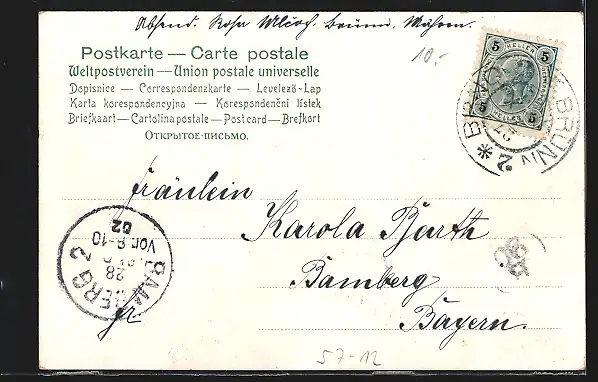 Absend. Rosa Wlcoch. Brünn. Mähren.
10.-
Postkarte — Carte postale
Weltpostverein — Union postale universelle
Dopisnice — Correspondenzkarte — Levelező-Lap
Karta korespondencyjna — Korespondenční lístek
Briefkaart — Cartolina postale — Post card — Brefkort
ОТКРЫТОЕ-ПИСЬМО.
5 HELLER 5
5 HELLER 5
BRÜNN 2
BRNO
Fräulein
Karola Barth
Bamberg
Bayern.
BAMBERG 2
28
Vor. 8-10
02
57-12